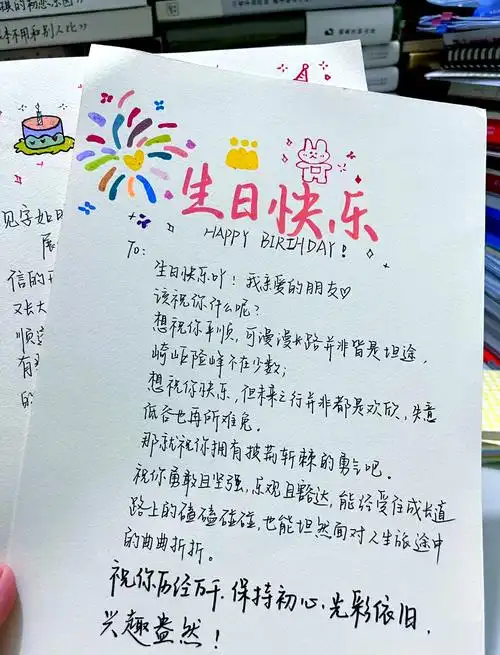 生日快乐
HAPPY BIRTHDAY!
To:
生日快乐吖！我亲爱的朋友♡
该祝你什么呢？
想祝你平顺，可漫漫长路并非皆是坦途，
崎岖险峰不在少数；
想祝你快乐，但未来之行并非都是欢欣，失意
低谷也再所难免。
那就祝你拥有披荆斩棘的勇气吧。
祝你勇敢且坚强，乐观且豁达，能经受住成长道
路上的磕磕碰碰，也能坦然面对人生旅途中
的曲曲折折。
祝你历经万千，保持初心，光彩依旧，
兴趣盎然！
见字如
展
信的
又大
顺
有
的
不用和别人比》